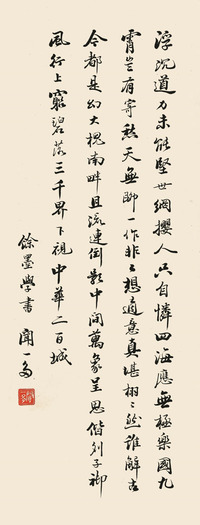 浮沉道力未能坚世網攖人只自憐四海應無極樂國九
霄豈有寄愁天無聊一作非非想適意真堪栩栩然誰解古
今都是幻大槐南畔且流連倒影中间萬象呈思偕列子御
風行上窮碧落三千界下視中華二百城
餘墨學書 聞一多